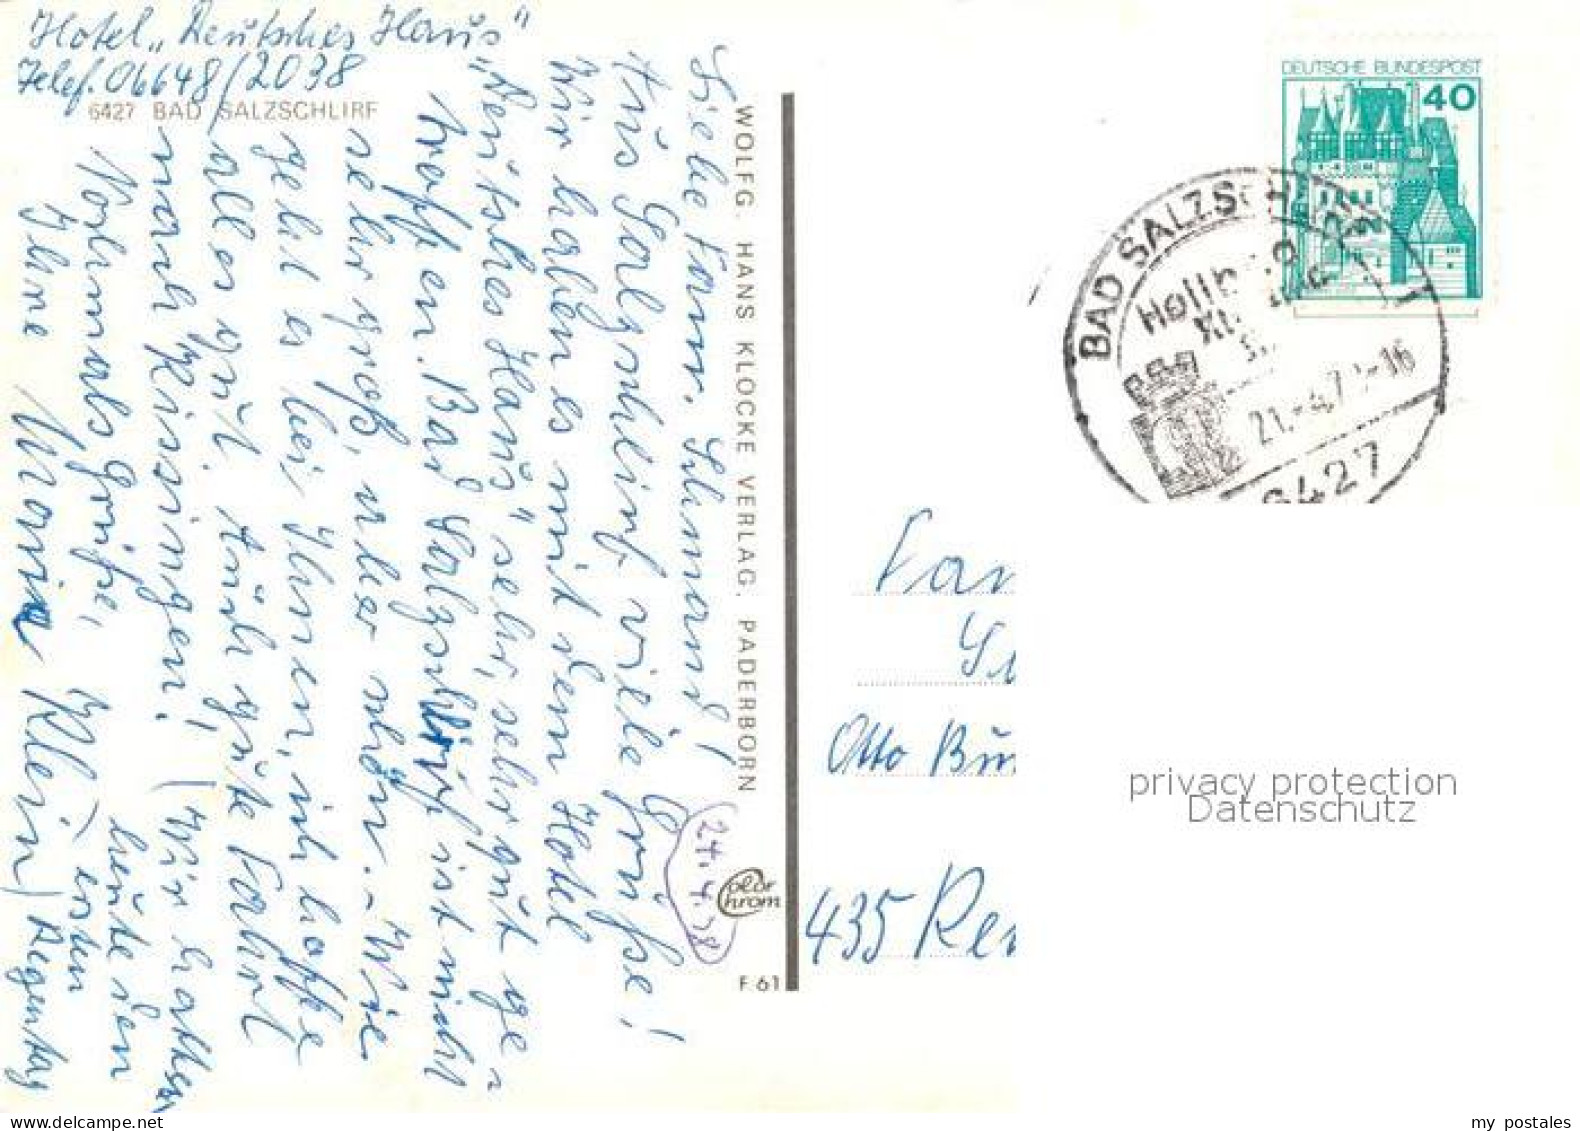 Hotel „Deutsches Haus“
Telef. 06648/2038
6427 BAD SALZSCHLIRF
Liebe Fam. Schmand!
Aus Salzschlirf viele Grüße!
Wir haben es mit dem Hotel
"Deutsches Haus" sehr, sehr gut ge-
troffen. Bad Salzschlirf ist nicht
sehr groß, aber schön. - Wie
geht es bei Ihnen, ich hoffe
alles gut. Auch gute Fahrt
nach Kissingen!
Nochmals Grüße,
Ihre Maria Klein
(Wir hatten
heute den
ersten
Regentag
WOLFG. HANS KLOCKE VERLAG. PADERBORN
24.4.78
Color
Chrom
F 61
DEUTSCHE BUNDESPOST
40
BAD SALZSCHLIRF
21.-4.7 -16
6427
Fam
Otto Bür
435 Re
privacy protection
Datenschutz
my postales